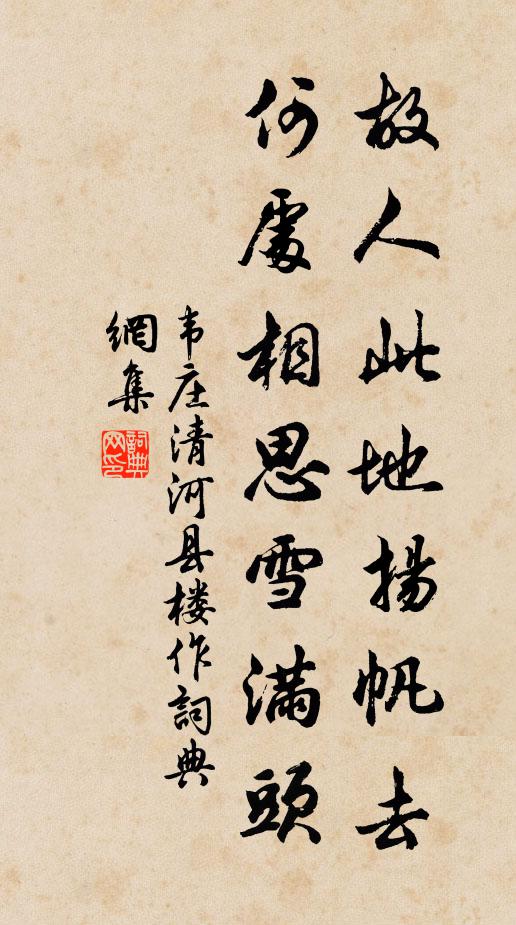 故人此地揚帆去
何處相思雪滿頭
韦庄清河县楼作詞典
網集
詞典网印